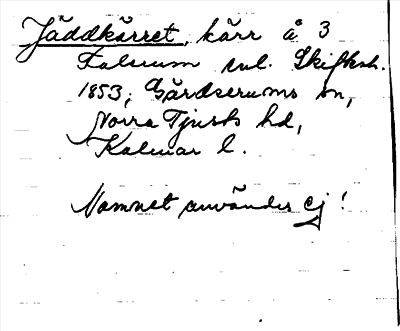 Jäddkärret, kärr å 3
Falerum enl. Skifteh.
1853, Gärdserums sn,
Norra Tjusts hd,
Kalmar l.
Namnet användes ej!